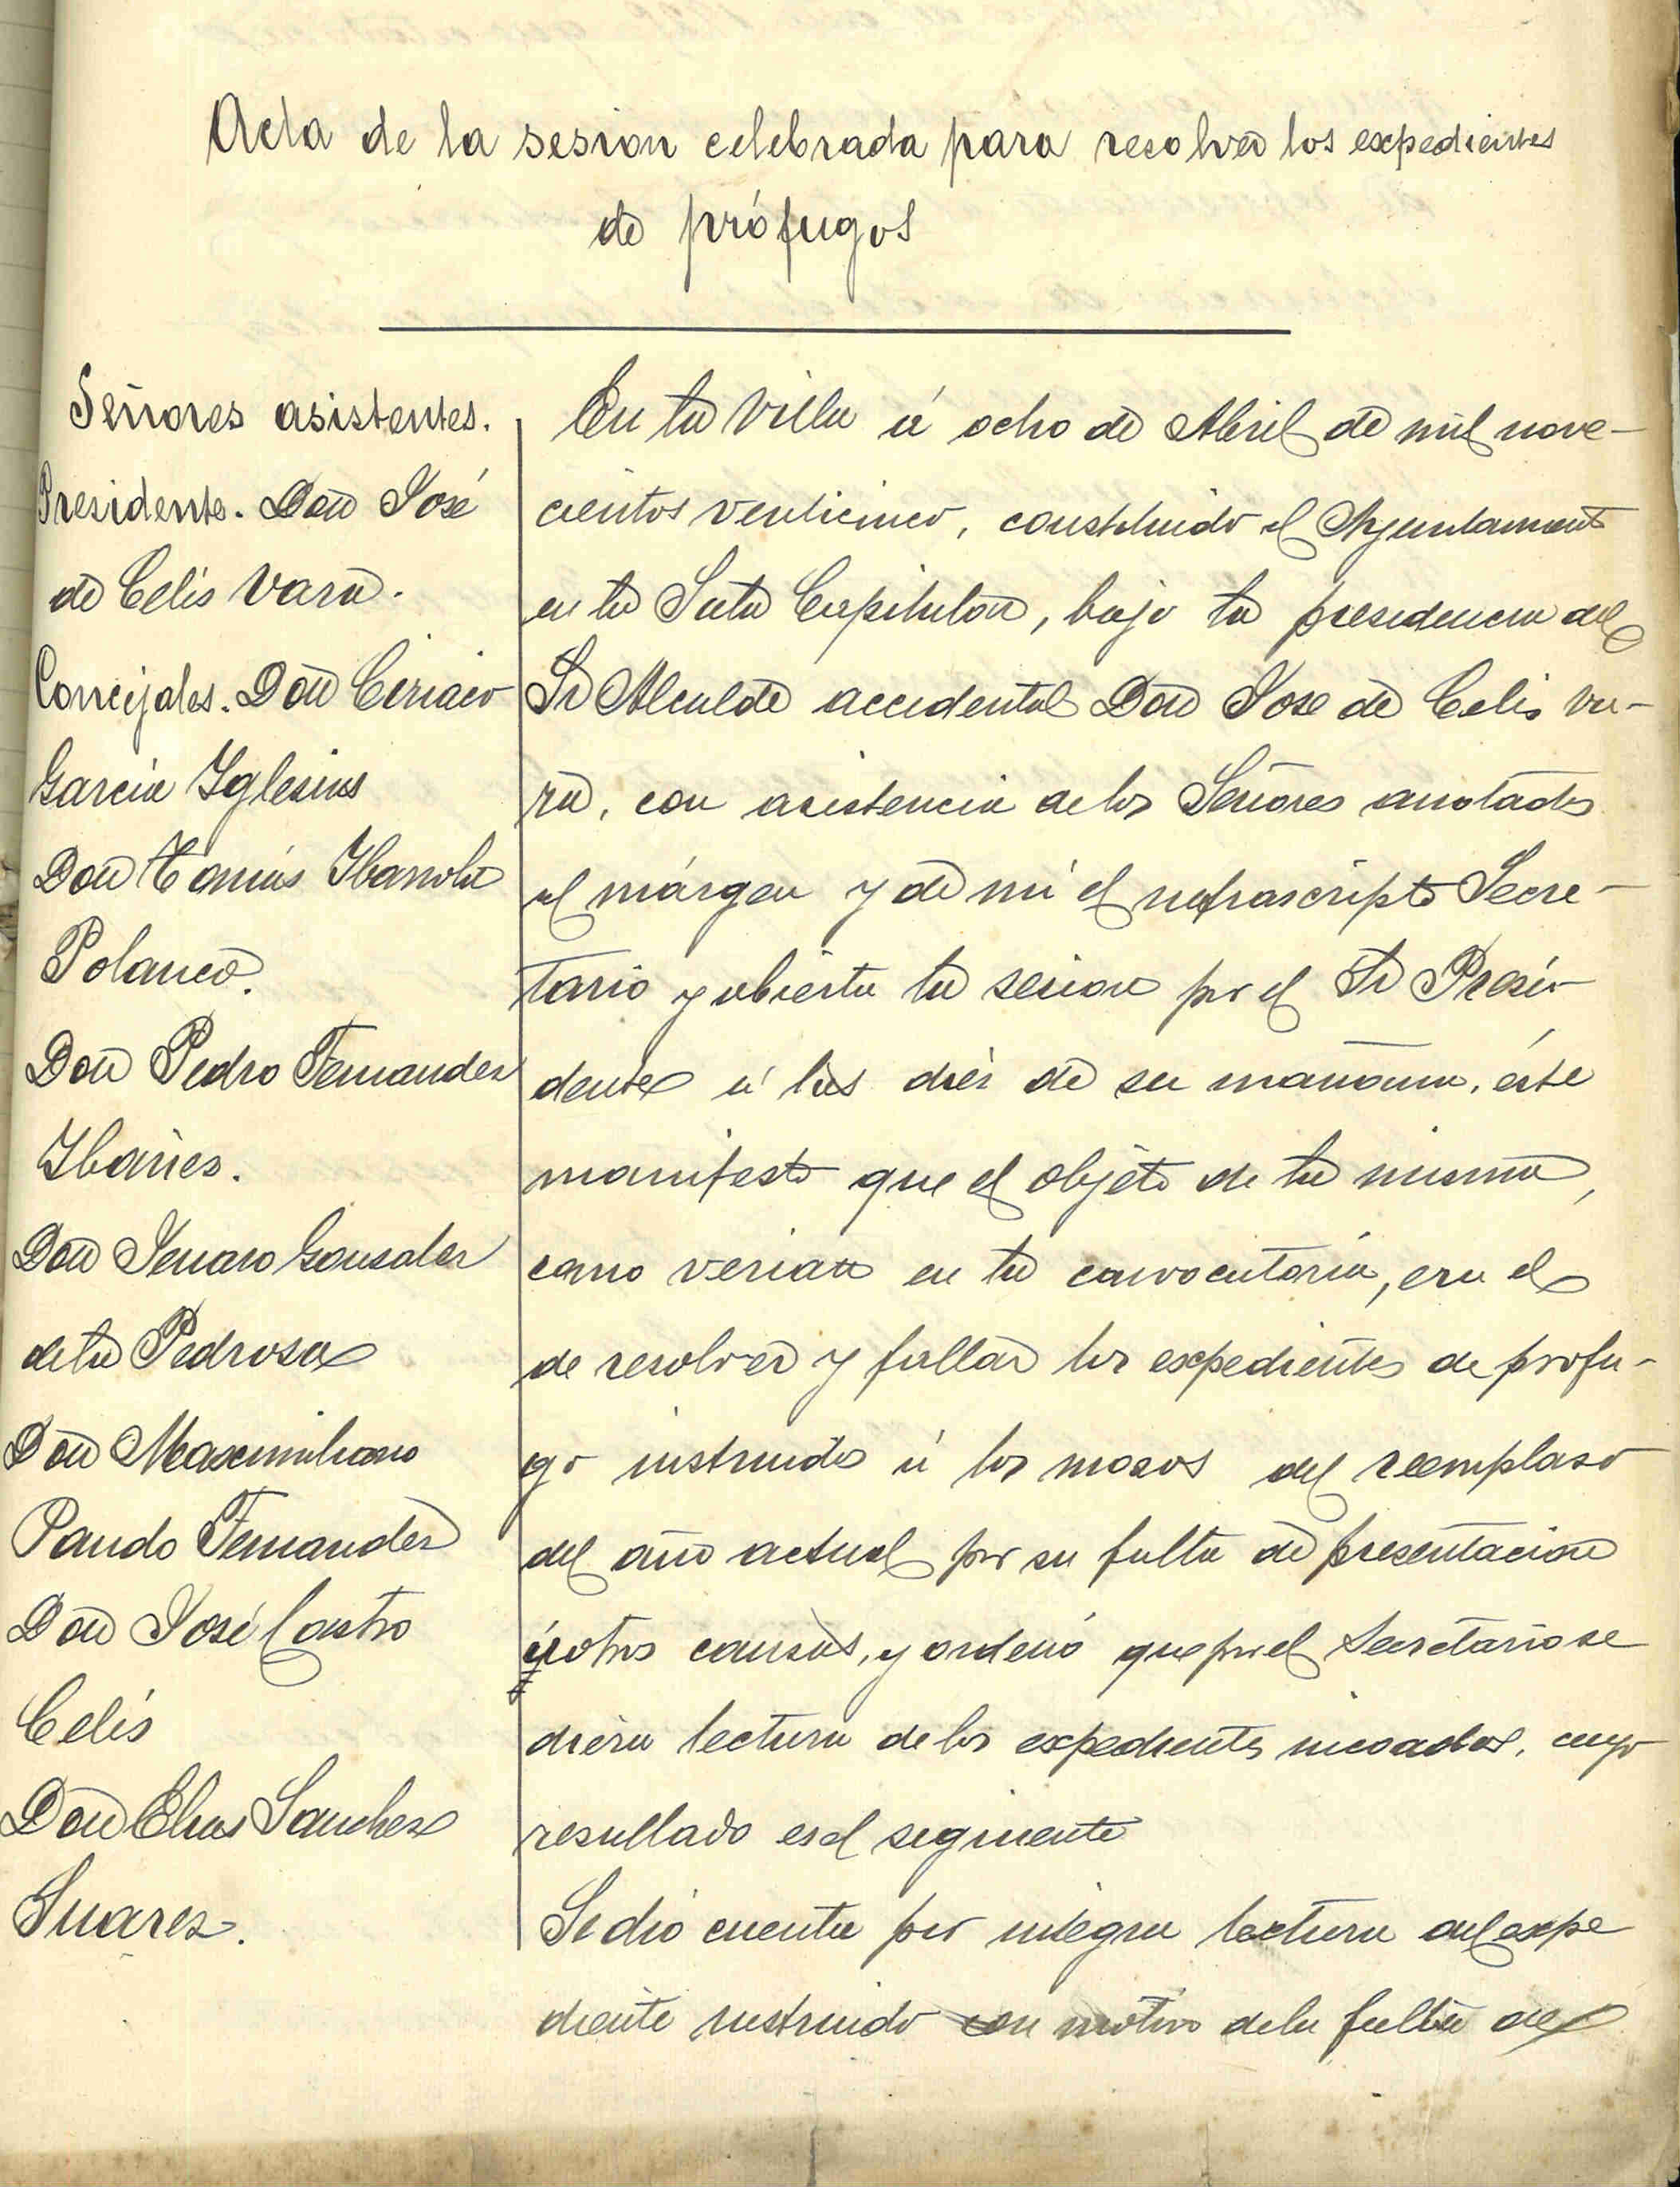 Acta de la sesion celebrada para resolver los expedientes
de prófugos
Señores asistentes.
Presidente. Don José
de Celis Vara.
Concejales. Don Ciriaco
Garcia Yglesias
Don Tomás
Polanco.
Don Pedro Fernandez
Ybañes.
Don Jenaro Gonzalez
de la Pedrosa
Don Maximiliano
Pando Fernandez
Don José Castro
Celis
Don Elias Sanchez
Suarez.
En la Villa á ocho de Abril de mil nove-
cientos venticinco, constituido el Ayuntamiento
en la Sala Capitular, bajo la presidencia del
Sr Alcalde accidental Don Jose de Celis Va-
ra, con asistencia de los Señores anotados
al márgen y de mi el infrascripto Secre-
tario y abierta la sesion por el Sr Presi-
dente á las diez de su mañana, éste
manifesto que el objeto de la misma,
como verian en la convocatoria, era el
de resolver y fallar los expedientes de profu-
go instruidos á los mozos del reemplazo
del año actual por su falta de presentacion
y otras causas, y ordenó que por el Secretario se
diera lectura de los expedientes incoados, cuyo
resultado es el siguiente
Se dió cuenta por integra lectura del expe
diente instruido con motivo de la falta de